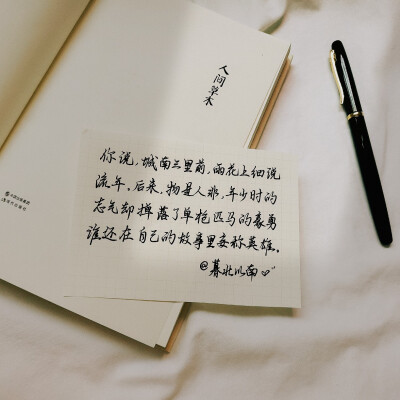 人间草木
你说，城南三里前，雨花上细说
流年。后来，物是人非，年少时的
志气却掉落了单枪匹马的豪勇
谁还在自己的故事里妄称英雄。
@暮北以南